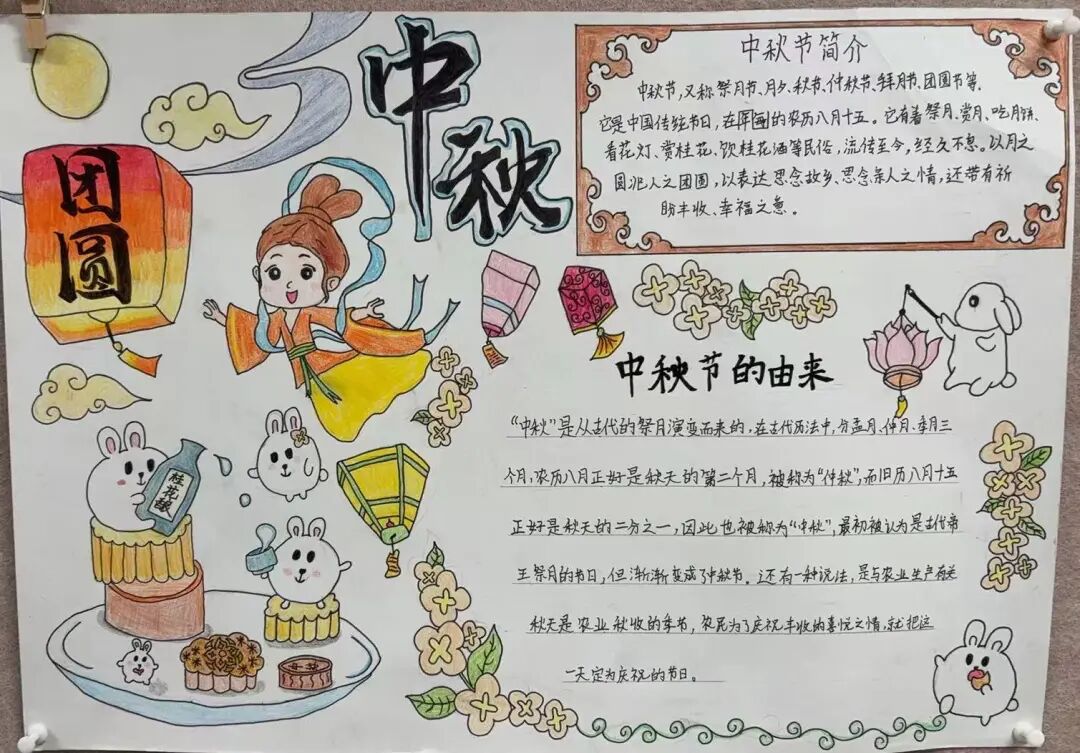 中秋
团圆
中秋节简介
中秋节,又称祭月节、月夕、秋节、仲秋节、拜月节、团圆节等,
它是中国传统节日,在的农历八月十五。它有着祭月、赏月、吃月饼、
看花灯、赏桂花、饮桂花酒等民俗,流传至今,经久不息。以月之
圆兆人之团圆,以表达思念故乡、思念亲人之情,还带有祈
盼丰收、幸福之意。
中秋节的由来
“中秋”是从古代的祭月演变而来的,在古代历法中,分孟月、仲月、季月三
个月,农历八月正好是秋天的第二个月,被称为“仲秋”,而旧历八月十五
正好是秋天的二分之一,因此也被称为“中秋”,最初被认为是古代帝
王祭月的节日,但渐渐变成了中秋节。还有一种说法,是与农业生产有关
秋天是农业秋收的季节,农民为了庆祝丰收的喜悦之情,就把这
一天定为庆祝的节日。
桂花酿